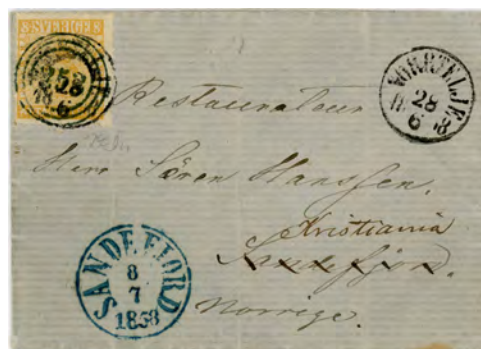 SVERIGE
NORRTELJE
28
6
Restaurateur
Herr Sören Hanssen.
Kristiania
Sandefjord.
Norrige.
SANDEFIORD
8
7
1858